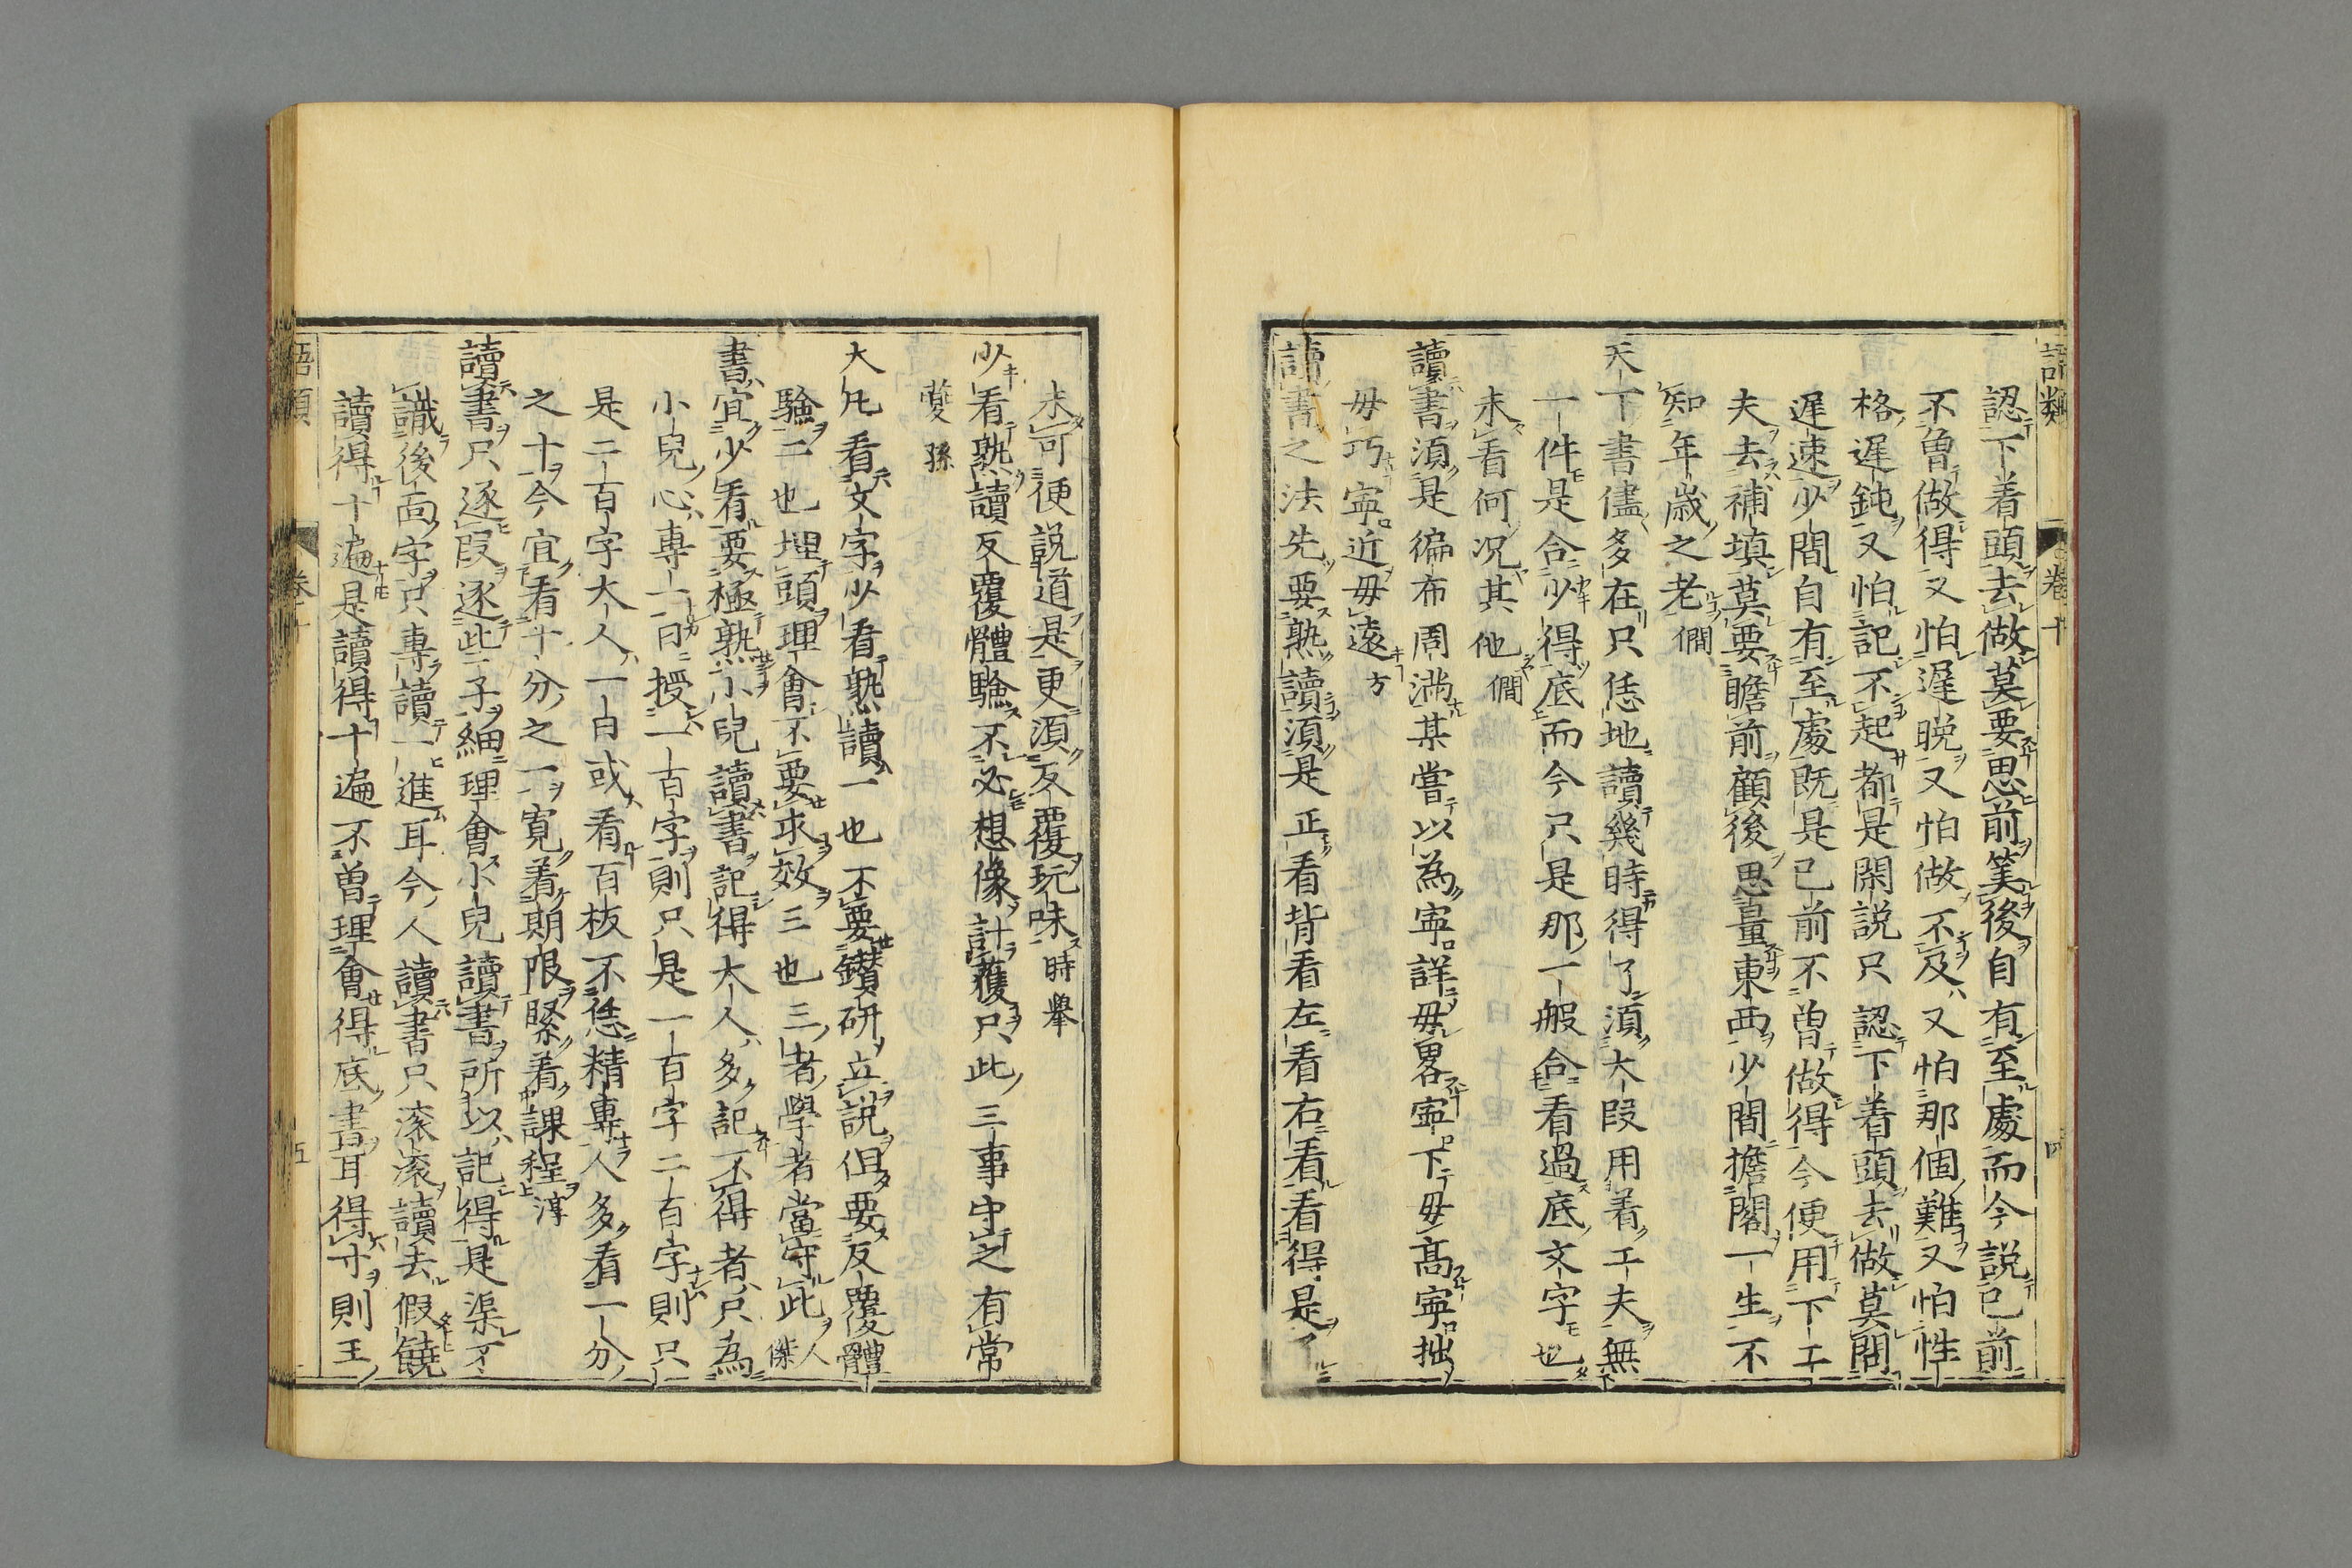 語類 卷十 四
認下着頭去做莫要思前筭後自有至處而今説已前
不曾做得又怕遲晩又怕做不及又怕那個難又怕性
格遲鈍又怕記不起都是閑説只認下着頭去做莫問
遲速少間自有至處既是已前不曾做得今便用下工
夫去補填莫要瞻前顧後思量東西少間擔閣一生不
知年歲之老 僩
天下書儘多在只恁地讀幾時得了須大段用着工夫無
一件是合少得底而今只是那一般合看過底文字也
未看何况其他 僩
讀書須是徧布周滿某嘗以為寧詳毋畧寧下毋高寧拙
毋巧寧近毋遠 方
讀書之法先要熟讀須是正看背看左看右看看得是了
未可便説道是更須反覆玩味 時舉
少看熟讀反覆體驗不必想像計獲只此三事守之有常
夔孫
大凡看文字少看熟讀一也不要鑚研立説但要反覆體
驗二也埋頭理會不要求效三也三者學者當守此 人傑
書宜少看要極熟小兒讀書記得大人多記不得者只為
小兒心專一日授一百字則只是一百字二百字則只
是二百字大人一日或看百板不恁精專人多看一分
之十今宜看十分之一寛着期限緊着課程 淳
讀書只逐段逐些子細理會小兒讀書所以記得是渠不
識後面字只專讀一進耳今人讀書只滚滚讀去假饒
讀得十遍是讀得十遍不曾理會得底書耳得寸則王
語類 卷十 五